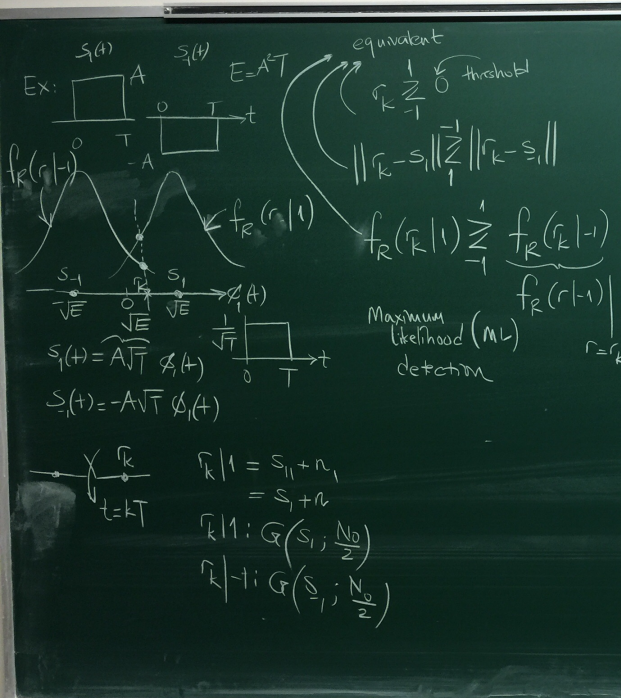 S₁(t) S₁(t) E=A²T
Ex: A
0 T t
0 T
-A
f_R(r|-1)
f_R(r|1)
S₋₁ S₁
-√E 0 r_k √E φ₁(t)
√E
S₁(t) = A√T φ₁(t)
S₋₁(t) = -A√T φ₁(t)
1/√T
0 T t
r_k
t=kT
r_k|1 = S₁₁+n₁
= S₁+n
r_k|1: G(S₁; N₀/2)
r_k|-1: G(S₋₁; N₀/2)
equivalent
r_k ≷ 0 threshold
1
-1
||r_k - S₁|| ≷ ||r_k - S₋₁||
-1
1
f_R(r_k|1) ≷ f_R(r_k|-1)
1
-1
f_R(r|-1)|
r=r_k
Maximum
likelihood (ML)
detection